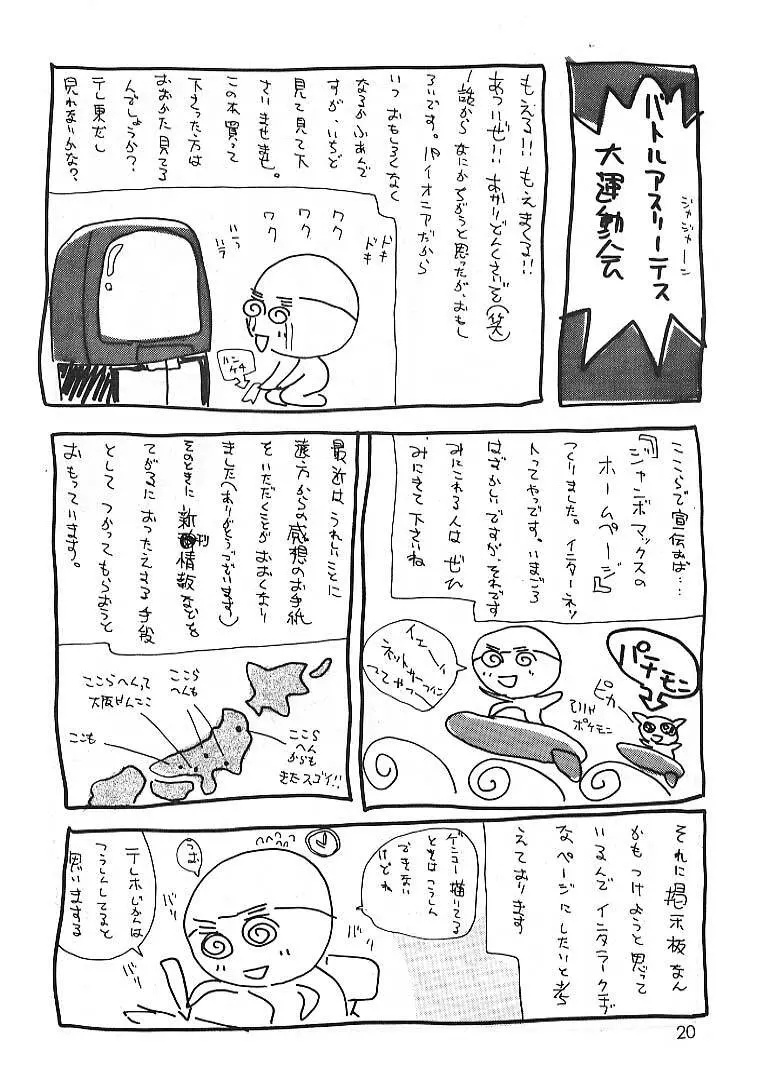 バトルアスリーテス
大運動会
ジャジャーン
もえる!!もえまくる!!
あついぜ!!あかりどんくさいぞ(笑)
1話からなにかちがうと思ったが、おもし
ろいです。パイオニアだから
いつおもしろくなく
なるかふあんで
すが、いちど
見て見て下
さいませませ。
この本買って
下さった方は
おおかた見てる
んでしょうか?
テレ東だし
見れないかな?
ドキ
ドキ
ワク
ワク
ワク
ハラ
ハラ
ハンケチ
ここらで宣伝おば…
『ジャンボマックスの
ホームページ』
つくりました。インターネッ
トってやつです。いまごろ
はずかしいですが、それです
みにこれる人はぜひ
みにきて下さいね
イェーイ
ネットサーフィン
ってやつ
パチモン
ピカ
ひいヤ
ポケモン
最近はうれしいことに
遠方からの感想のお手紙
をいただくことがおおくなり
ました(ありがとうございます)
そのときに新刊情報などを
てがるにおつたえする手段
としてつかってもらおうと
おもっています。
ここら
へんも
ここらへんって
大阪せんここ
ここも
ここら
へん
からも
きたスゴイ!!
それに掲示板なん
かもつけようと思って
いるんでインタラークチブ
なページにしたいと考
えております
ゲンコー描いてる
ときはこうしん
できない
けどね
うむ
バリ
バリ
バリ
テレホじかんは
こうしんしてると
思いまする
20